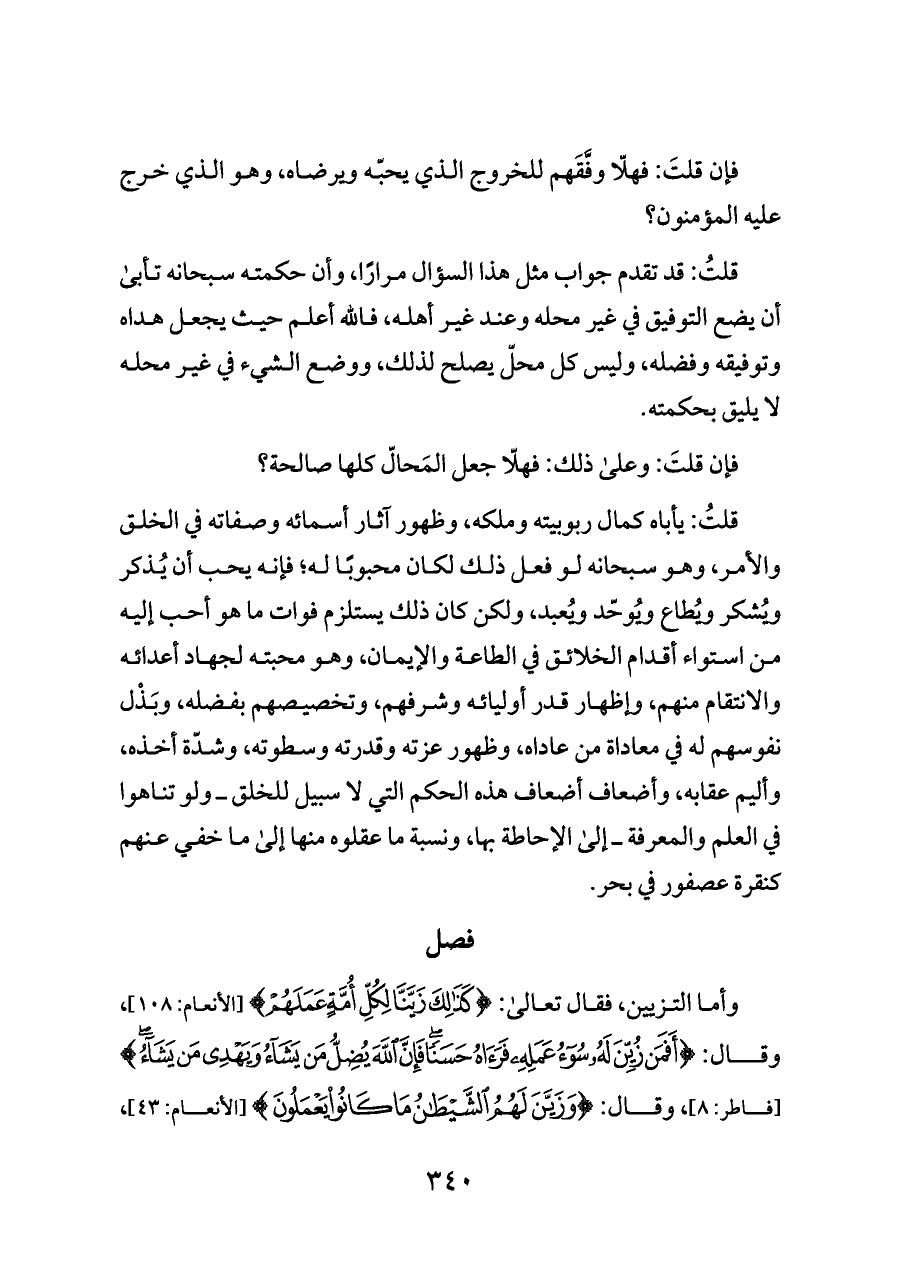 فإن قلتَ: فهلّا وفَّقَهم للخروج الذي يحبّه ويرضاه، وهو الذي خرج
عليه المؤمنون؟
قلتُ: قد تقدم جواب مثل هذا السؤال مرارًا، وأن حكمته سبحانه تأبىٰ
أن يضع التوفيق في غير محله وعند غير أهله، فالله أعلم حيث يجعل هداه
وتوفيقه وفضله، وليس كل محلّ يصلح لذلك، ووضع الشيء في غير محله
لا يليق بحكمته.
فإن قلتَ: وعلىٰ ذلك: فهلّا جعل المَحالّ كلها صالحة؟
قلتُ: يأباه كمال ربوبيته وملكه، وظهور آثار أسمائه وصفاته في الخلق
والأمر، وهو سبحانه لو فعل ذلك لكان محبوبًا له؛ فإنه يحب أن يُذكر
ويُشكر ويُطاع ويُوحّد ويُعبد، ولكن كان ذلك يستلزم فوات ما هو أحب إليه
من استواء أقدام الخلائق في الطاعة والإيمان، وهو محبته لجهاد أعدائه
والانتقام منهم، وإظهار قدر أوليائه وشرفهم، وتخصيصهم بفضله، وبَذْل
نفوسهم له في معاداة من عاداه، وظهور عزته وقدرته وسطوته، وشدّة أخذه،
وأليم عقابه، وأضعاف أضعاف هذه الحكم التي لا سبيل للخلق ـ ولو تناهوا
في العلم والمعرفة ـ إلىٰ الإحاطة بها، ونسبة ما عقلوه منها إلىٰ ما خفي عنهم
كنقرة عصفور في بحر.
فصل
وأما التزيين، فقال تعالىٰ: ﴿كَذَٰلِكَ زَيَّنَّا لِكُلِّ أُمَّةٍ عَمَلَهُمْ﴾ [الأنعام: ١٠٨]،
وقال: ﴿أَفَمَن زُيِّنَ لَهُۥ سُوٓءُ عَمَلِهِۦ فَرَءَاهُ حَسَنًاۖ فَإِنَّ ٱللَّهَ يُضِلُّ مَن يَشَآءُ وَيَهْدِى مَن يَشَآءُۖ﴾
[فاطر: ٨]، وقال: ﴿وَزَيَّنَ لَهُمُ ٱلشَّيْطَٰنُ مَا كَانُوا۟ يَعْمَلُونَ﴾ [الأنعام: ٤٣]،
٣٤٠